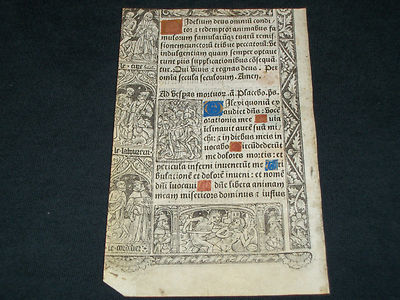 idelium deus omniũ condi
tor ⁊ redemptor animabus fa
mulorum famularũqʒ tuarũ remis
sionem cunctorũ tribue peccatorũ. vt
indulgentiam quam semper optaue
runt piis supplicationibus cõsequã
tur. Qui viuis ⁊ regnas deus. Per
omnia secula seculorum. Amen.
Ad vespas mortuor. añ. Placebo. ps.
Ilexi quoniã ex
audiet dñs: vocẽ
orationis mee
uia
inclinauit aurẽ suã mi
chi: ⁊ in diebus meis in
uocabo
ircũdederũt
me dolores mortis: et
pericula inferni inuenerũt me
ri
bulationẽ et dolorẽ inueni: et nomẽ
dñi inuocaui
dñe libera animam
meam misericors dominus ⁊ iustus
le cordelier